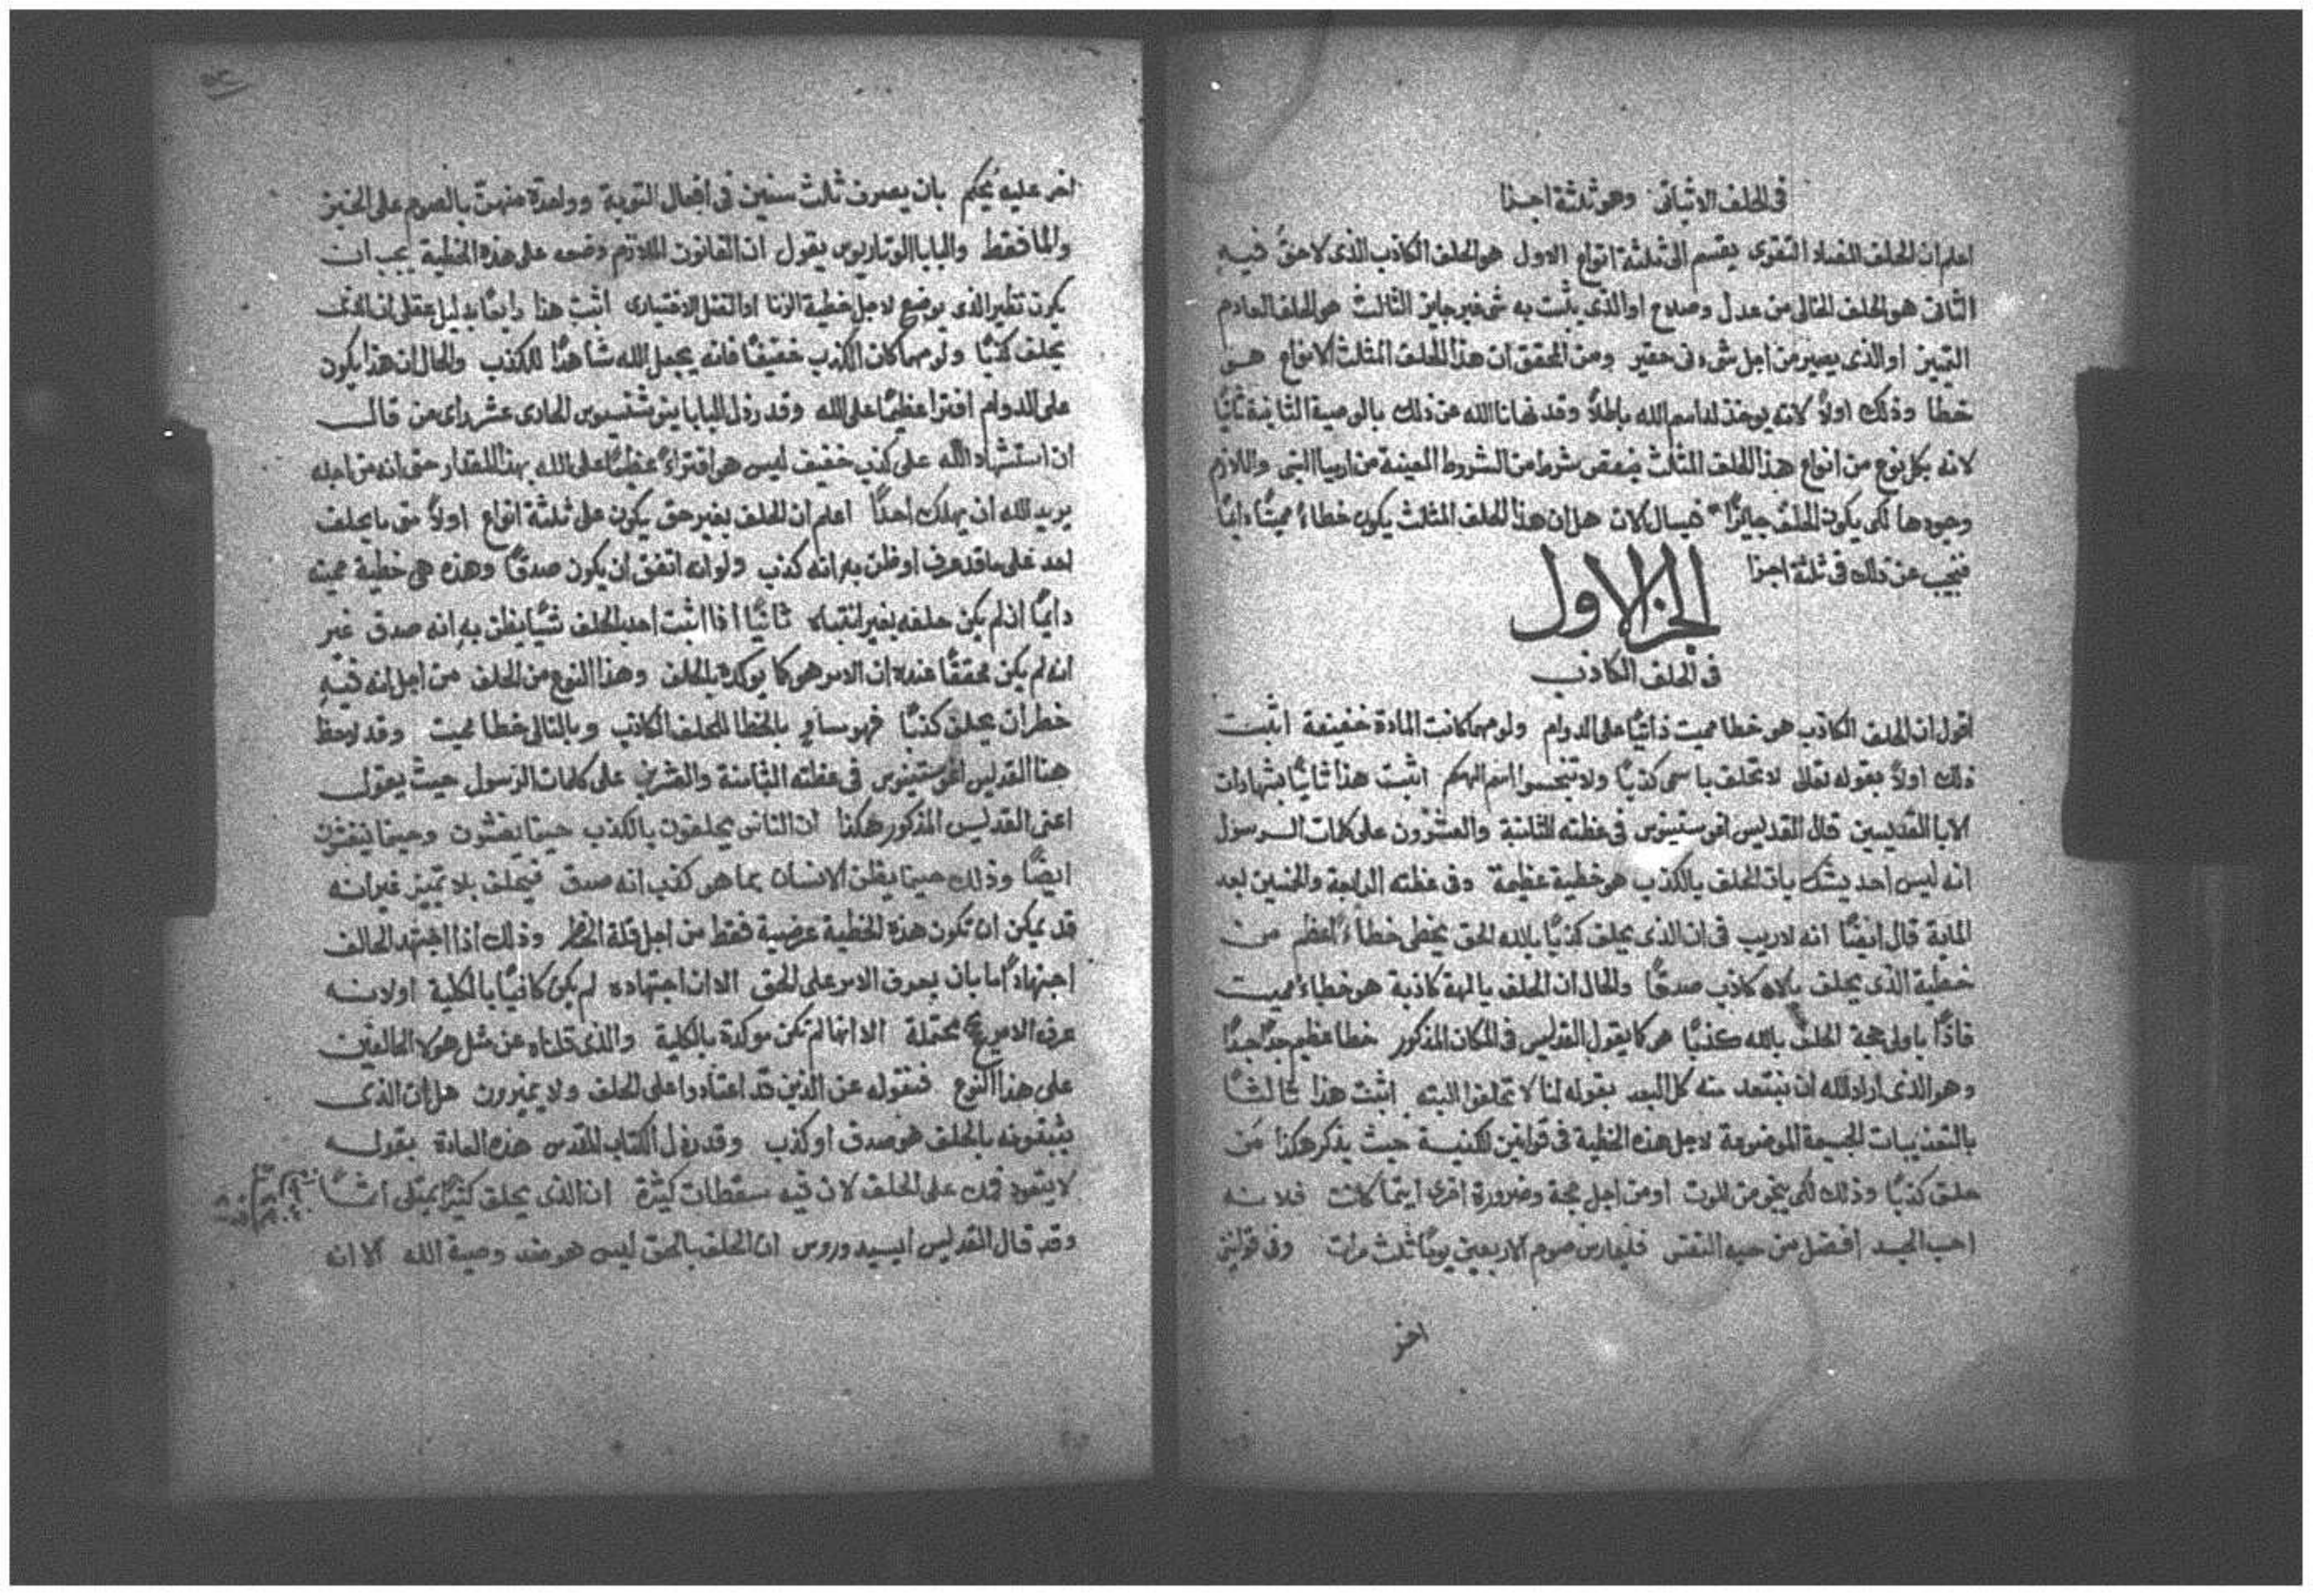 فى الحلف الاثباتى وهو ثلثة اجزا
اعلم ان الحلف المضاد التقوى يقسم الى ثلثة انواع الاول هو الحلف الكاذب الذى لا حق فيه
الثانى هو الحلف الخالى من عدل وصلاح او الذى يثبت به شى غير جايز الثالث هو الحلف العادم
التميز او الذى يصير من اجل شى دنى حقير ومن المحقق ان هذا الحلف المثلث الانواع هو
خطا وذلك اولاً لانه يوخذ اسم الله باطلاً وقد نهانا الله عن ذلك بالوصية الثانية ثانيًا
لانه بكل نوع من انواع هذا الحلف المثلث ينقص شرط من الشروط المعينة من ارميا النبى واللازم
وجودها لكى يكون الحلف جايزًا فيسال الان هل ان هذا الحلف المثلث يكون خطاءً مميتًا دايمًا
فنجيب عن ذلك فى ثلثة اجزا
الجز الاول
فى الحلف الكاذب
اقول ان الحلف الكاذب هو خطا مميت ذاتيًا على الدوام ولو مهما كانت المادة خفيفة اثبت
ذلك اولاً بقوله تعالى لا تحلف باسمى كذبًا ولا تنجسوا اسم الهكم اثبت هذا ثانيًا بشهادات
الابا القديسين قال القديس اغوستينوس فى عظته الثامنة والعشرون على كلمات الرسول
انه ليس احد يشك بان الحلف بالكذب هو خطية عظيمة وفى عظته الرابعة والخمسين بعد
الماية قال ايضًا انه لا ريب فى ان الذى يحلف كذبًا بالله الحق يخطى خطاءً اعظم من
خطية الذى يحلف بالاه كاذب صدقًا والحال ان الحلف بالهة كاذبة هو خطاءً مميت
فاذًا باولى حجة الحلف بالله كذبًا هو كما يقول القديس فى المكان المذكور خطا عظيم جدًا جدًا
وهو الذى اراد الله ان نبتعد منه كل البعد بقوله لنا لا تحلفوا البته اثبت هذا ثالثًا
بالتعذيبات الجسيمة الموضوعة لاجل هذه الخطية فى قوانين الكنيسة حيث يذكر هكذا من
حلف كذبًا وذلك لكى ينجى من الموت او من اجل حجة وضرورة اخرى ايتما كانت فلانه
احب الجسد افضل من حبه النفس فليمارس صوم الاربعين يومًا ثلث مرات وفى قوانين
اخر
اخر عليه يحكم بان يصرف ثلث سنين فى افعال التوبة وواحدة منهن بالصوم على الخبز
والما فقط والبابا يقول ان القانون اللازم وضعه على هذه الخطية يجب ان
يكون نظير الذى يوضع لاجل خطية الزنا او القتل الاختيارى اثبت هذا رابعًا بدليل عقلى ان الذى
يحلف كذبًا ولو مهما كان الكذب خفيفًا فانه يجعل الله شاهدًا للكذب والحال ان هذا يكون
على الدوام افترا عظيمًا على الله وقد رذل البابا الحادى عشر راى من قال
ان استشهاد الله على كذب خفيف ليس هو افتراءً عظيمًا على الله بهذا المقدار حتى انه من اجله
يريد الله ان يهلك احدًا اعلم ان الحلف بغير حق يكون على ثلثة انواع اولاً متى ما يحلف
احد على ما قد عرف او ظن به انه كذب ولو انه اتفق ان يكون صدقًا وهذه هى خطية مميتة
دايمًا ان لم يكن حلفه بغير انتباه ثانيًا اذا اثبت احد بالحلف شيًا يظن به انه صدق غير
انه لم يكن محققًا عنده ان الامر هو كما يوكده بالحلف وهذا النوع من الحلف من اجل انه فيه
خطر ان يحلف كذبًا فهو مساوٍ بالخطا للحلف الكاذب وبالتالى خطا مميت وقد لاحظ
هذا القديس اغوستينوس فى عظته الثامنة والعشرين على كلمات الرسول حيث يقول
اعنى القديس المذكور هكذا ان الناس يحلفون بالكذب حينما يغشون وحينما يُغشون
ايضًا وذلك حينما يظن الانسان بما هو كذب انه صدق فيحلف بلا تمييز غير انه
قد يمكن ان تكون هذه الخطية عرضية فقط من اجل قلة الخطر وذلك اذا اجتهد الحالف
اجتهادًا ما بان يعرف الامر على الحق الا ان اجتهاده لم يكن كافيًا بالكلية او لانه
عرف الامور محتملة الا انها لم تكن موكدة بالكلية والذى قلناه عن مثل هولا الحالفين
على هذا النوع فنقوله عن الذين قد اعتادوا على الحلف ولا يميزون هل ان الذى
يثبتونه بالحلف هو صدق او كذب وقد رذل الكتاب المقدس هذه العادة بقوله
لا يتعود فمك على الحلف لان فيه سقطات كثيرة ان الذى يحلف كثيرًا يمتلى اثمًا
وقد قال القديس ايسيدوروس ان الحلف بالحق ليس هو ضد وصية الله الا انه